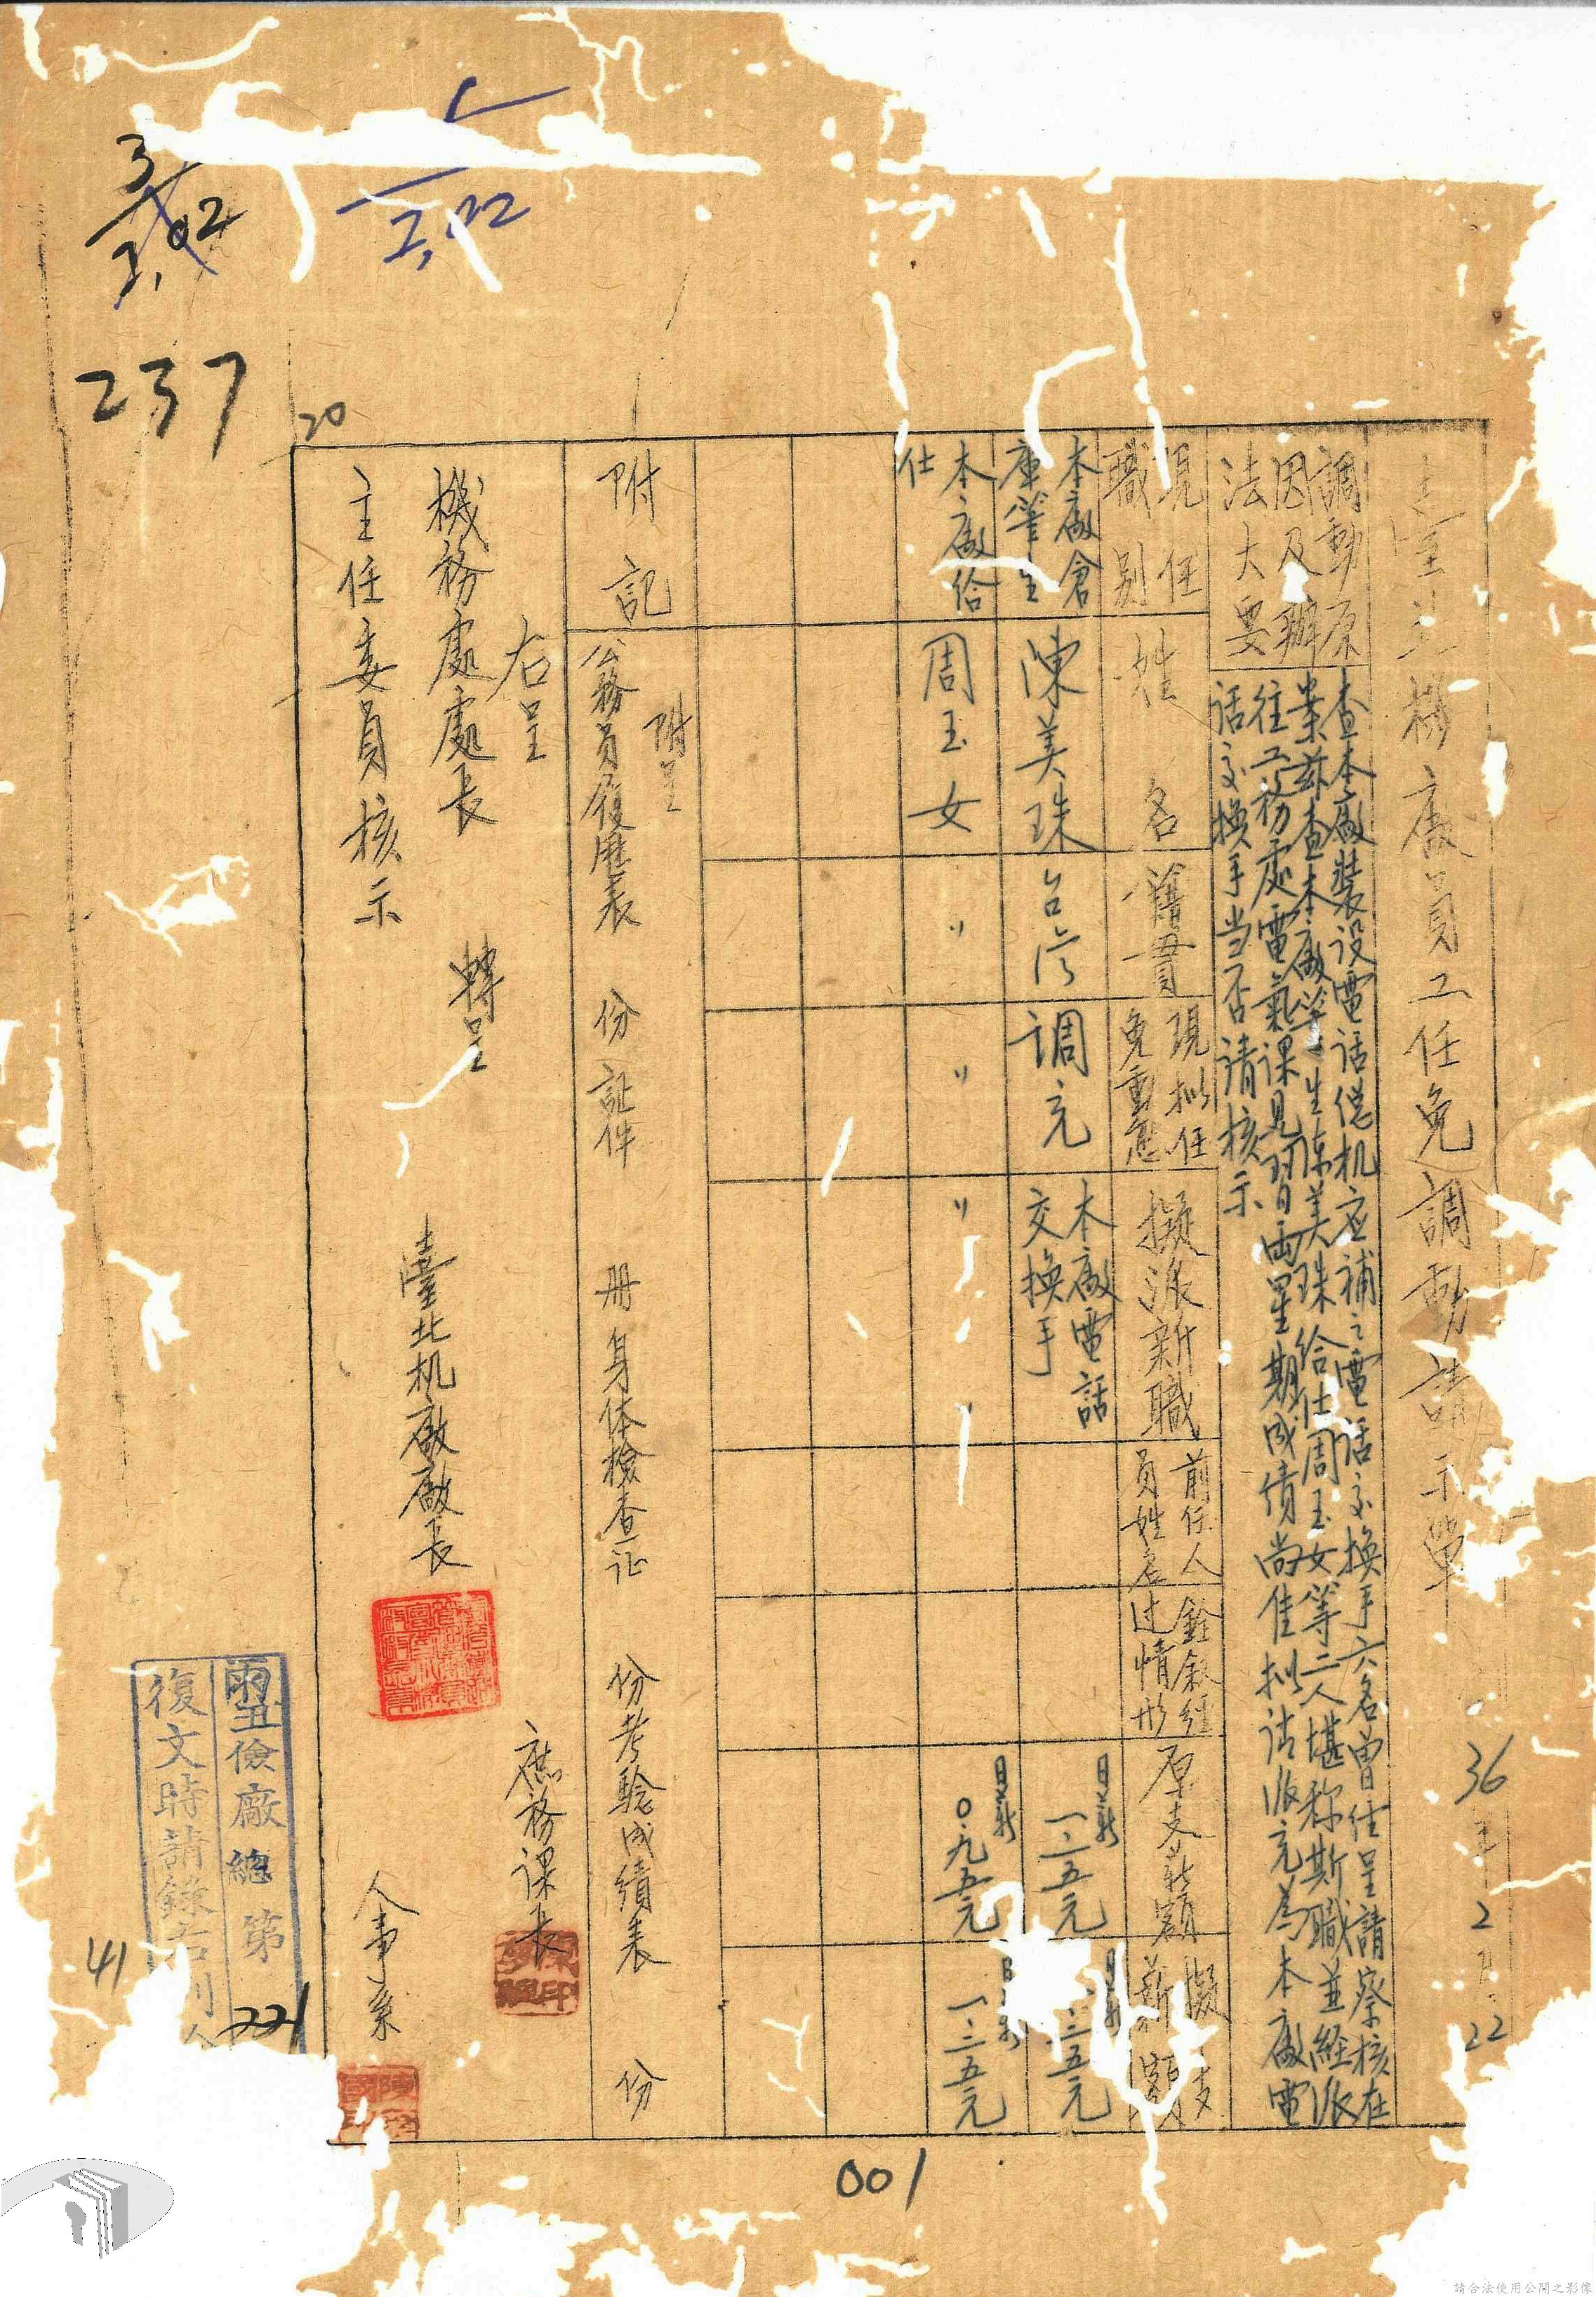 臺北機廠員工任免調動請示單
36年2月22
調動原
因及辦
法大要
查本廠裝設電話總机应補之電話交換手六名曾經呈請察核在
案茲查本廠筆生陳美珠給仕周玉女等二人堪称斯職並経派
往工務处電氣課見習両星期成绩尚佳拟請派充為本廠電
話交換手当否请核示
現任
職别
姓名
籍貫
現拟任
免重意
擬派新職
前任人
員姓名
銓叙経
过情形
原支薪額
擬支
薪額
本廠倉
庫筆生
陳美珠
台湾
调充
本廠電話
交換手
日薪
一.二五元
日薪
.三五元
本廠給
仕
周玉女
〃
〃
〃
日薪
0.九五元
一.三五元
附記
附呈
公務員履歷表 份 証件 册 身体檢查证 份 考驗成績表 份
右呈
機務處處長 轉呈
主任委員核示
臺北机廠廠長
庶務课長
人事系
丑儉廠總第221
復文時請錄右列
41
3
2,02
2,02
237
20
001
請合法使用公開之影像